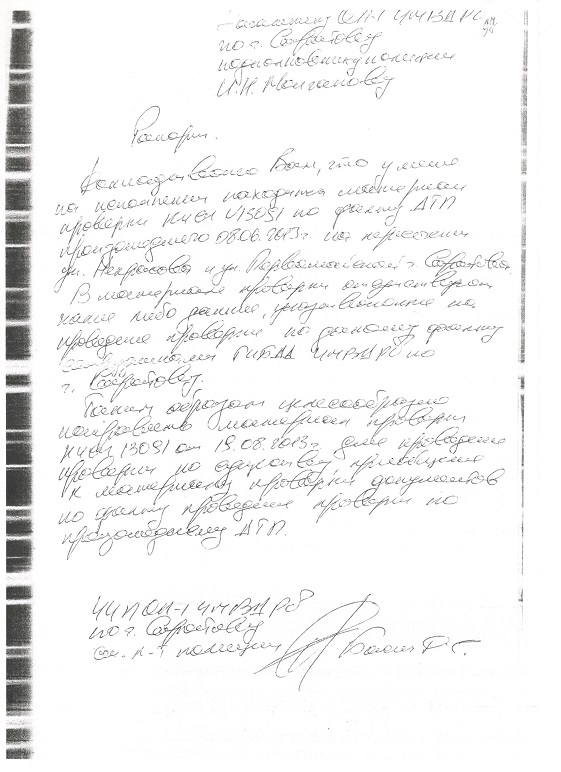 Начальнику ОП-1 УМВД РФ
по г. Саратову
подполковнику полиции
И.Н. Молчанову
Рапорт.
Докладываю Вам, что у меня
на исполнении находится материал
проверки КУСП 13051 по факту ДТП
произошедшего 08.06.2013г. на пересечении
ул. Некрасова и ул. Первомайской г. Саратова.
В материале проверки отсутствуют
какие либо данные, указывающие на
проведение проверки по данному факту
сотрудниками ГИБДД УМВД РФ по
г. Саратову.
Таким образом целесообразно
направить материал проверки
КУСП 13051 от 19.08.2013г. для проведения
проверки по
к материалу проверки документов
по факту проведения проверки по
произошедшему ДТП.
УУП ОП-1 УМВД РФ
по г. Саратову
ст. л-т полиции